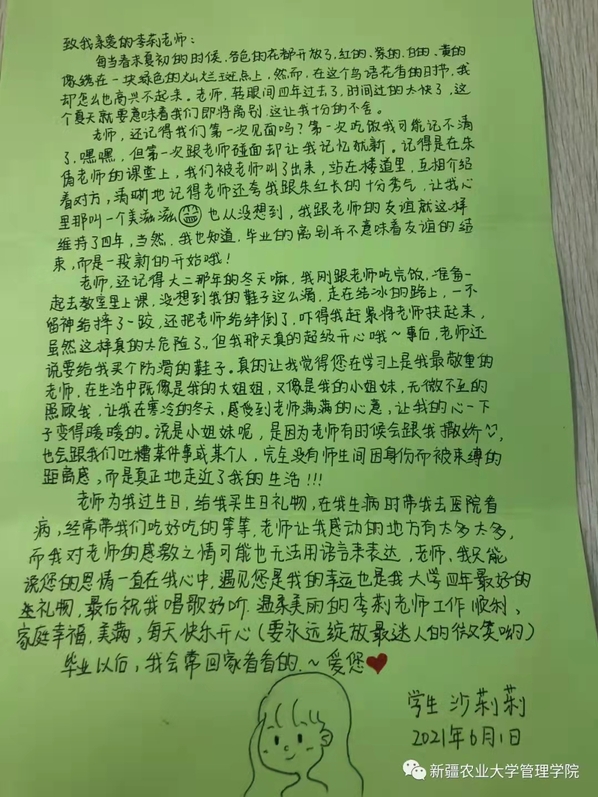 致我亲爱的李莉老师：
每当春末夏初的时候，各色的花都开放了，红的、紫的、白的、黄的
像绣在一块绿色的灿烂斑点上，然而，在这个鸟语花香的日节，我
却怎么也高兴不起来。老师，转眼间四年过去了，时间过的太快了，这
个夏天就要意味着我们即将离别，这让我十分的不舍。
老师，还记得我们第一次见面吗？第一次吃饭我可能记不清
了，嘿嘿，但第一次跟老师碰面却让我记忆犹新。记得是在朱
倩老师的课堂上，我们被老师叫了出来，站在楼道里，互相介绍
着对方，清晰地记得老师还夸我跟朱红长的十分秀气，让我心
里那叫一个美滋滋 也从没想到，我跟老师的友谊就这样
维持了四年，当然，我也知道，毕业的离别并不意味着友谊的结
束，而是一段新的开始哦！
老师，还记得大二那年的冬天嘛，我刚跟老师吃完饭，准备一
起去教室里上课，没想到我的鞋子这么滑，走在结冰的路上，一不
留神给摔了一跤，还把老师给绊倒了，吓得我赶紧将老师扶起来，
虽然这样真的太危险了，但我那天真的超级开心哦～事后，老师还
说要给我买个防滑的鞋子。真的让我觉得您在学习上是我最敬重的
老师，在生活中既像是我的大姐姐，又像是我的小姐妹，无微不至的
照顾我，让我在寒冷的冬天，感受到老师满满的心意，让我的心一下
子变得暖暖的。说是小姐妹呢，是因为老师有时候会跟我撒娇♡，
也会跟我们吐糟某件事或某个人，完全没有师生间因身份而被束缚的
距离感，而是真正地走近了我的生活！！！
老师为我过生日，给我买生日礼物，在我生病时带我去医院看
病，经常带我们吃好吃的等等，老师让我感动的地方有太多太多，
而我对老师的感激之情可能也无法用语言来表达，老师，我只能
说您的恩情一直在我心中，遇见您是我的幸运也是我大学四年最好的
礼物，最后祝我唱歌好听、温柔美丽的李莉老师工作顺利、
家庭幸福、美满，每天快乐开心（要永远绽放最迷人的微笑哟）
毕业以后，我会常回家看看的.～爱您❤
学生 沙莉莉
2021年6月1日
新疆农业大学管理学院